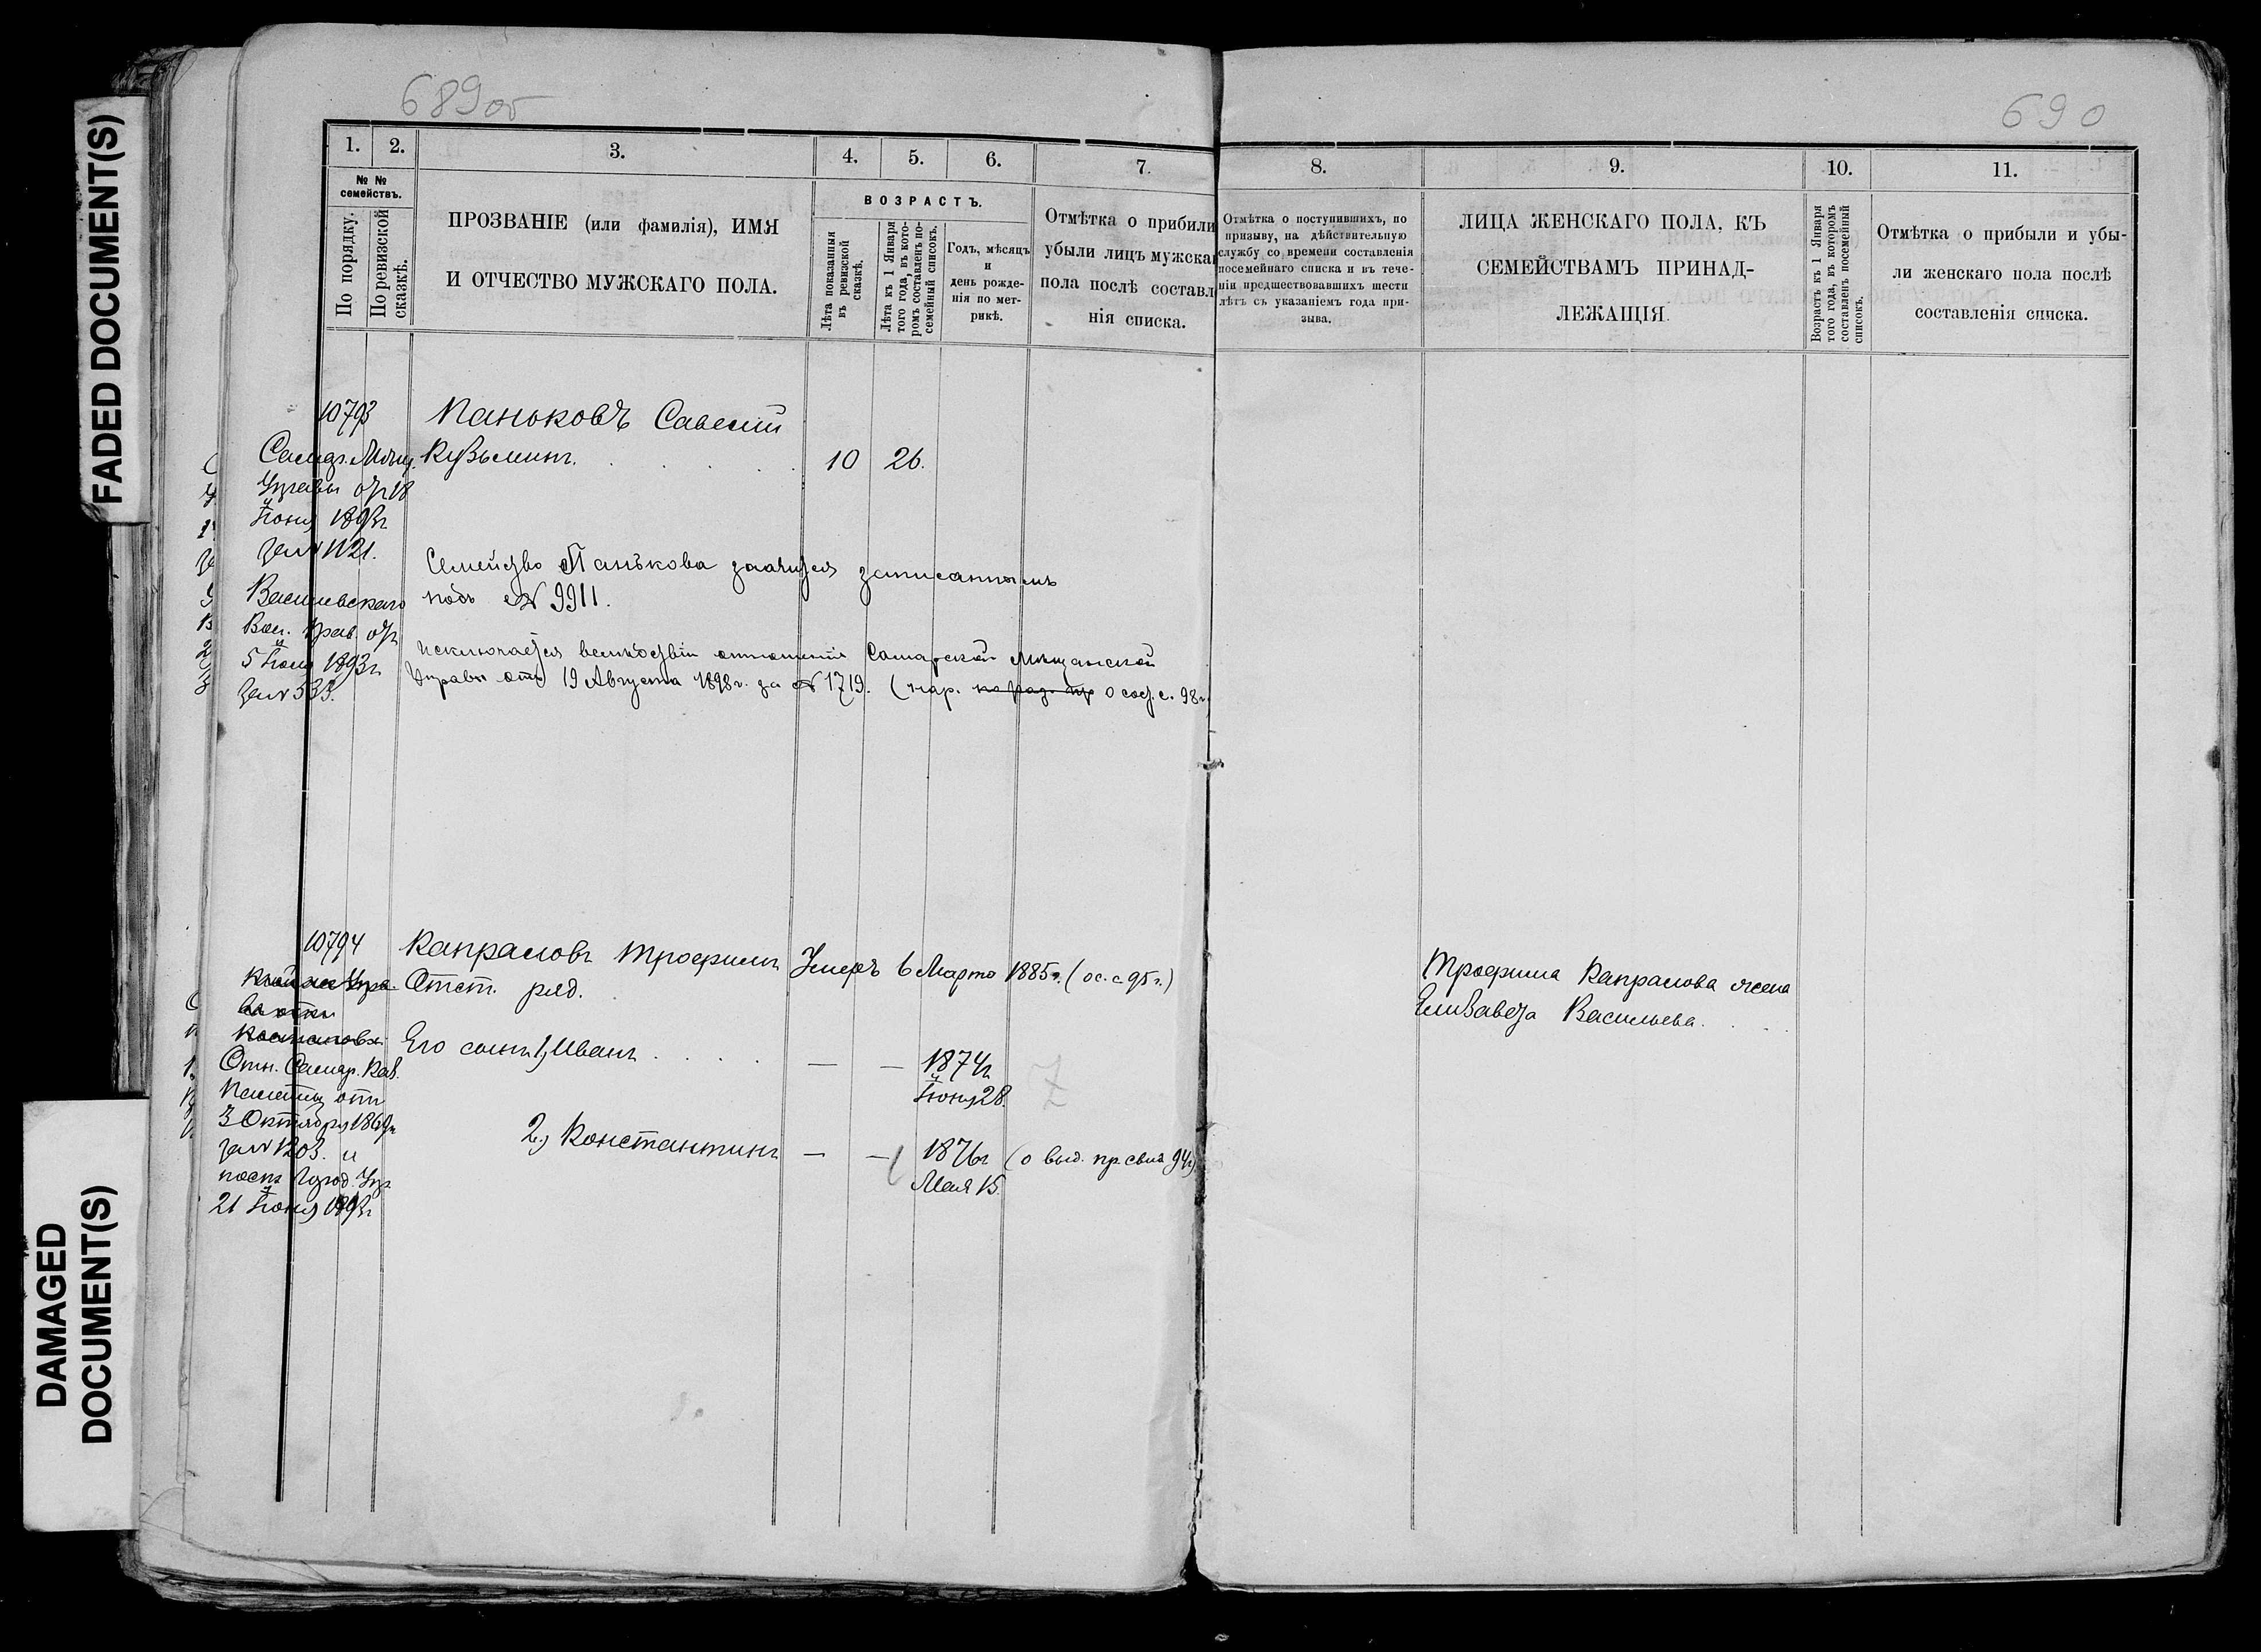 FADED DOCUMENT(S)
DAMAGED
DOCUMENT(S)
689об
1.
2.
3.
4.
5.
6.
7.
№ №
семействъ.
По порядку.
По ревизской
сказкѣ.
ПРОЗВАНІЕ (или фамилія), ИМЯ
И ОТЧЕСТВО МУЖСКАГО ПОЛА.
ВОЗРАСТЪ.
Лѣта показанныя
въ ревизской
сказкѣ.
Лѣта къ 1 Января
того года, въ кото-
ромъ составленъ по-
семейный списокъ.
Годъ, мѣсяцъ
и
день рожде-
нія по мет-
рикѣ.
Отмѣтка о прибыли
убыли лицъ мужска
пола послѣ составл
нія списка.
10793
Паньковъ Савелій
Кузьминъ.
10
26.
Самар. Мѣщ.
Управы отъ 18
Іюня 1893г
за № 1121.
Васильевскаго
Вол. Прав. отъ
5 Іюня 1893г
за № 533.
Семейство Панькова значится записаннымъ
подъ № 9911.
Исключается вслѣдствіи отношенія Самарской Мѣщанской
Управы отъ 19 Августа 1898г. за № 1719. (нар. о сос. с. 98г.
10794
Капраловъ Трофимъ
Отст. ряд.
Умеръ 6 Марта 1885г. (ос. с 95г.)
Отн. Самар. Каз.
Палаты отъ
3 Октября 1869г
за № 1203. и
пост. Город. Упр.
21 Іюня 1893г
Его сынъ 1, Иванъ
— — 1874г
Іюня 28.
2, Константинъ
— — 1876г (о выд. пр. свид 94г)
Мая 15.
690
8.
9.
10.
11.
Отмѣтка о поступившихъ, по
призыву, на дѣйствительную
службу со времени составленія
посемейнаго списка и въ тече-
ніи предшествовавшихъ шести
лѣтъ съ указаніемъ года при-
зыва.
ЛИЦА ЖЕНСКАГО ПОЛА, КЪ
СЕМЕЙСТВАМЪ ПРИНАД-
ЛЕЖАЩІЯ.
Возрастъ къ 1 Января
того года, въ которомъ
составленъ посемейный
списокъ.
Отмѣтка о прибыли и убы-
ли женскаго пола послѣ
составленія списка.
Трофима Капралова жена
Елизавета Васильева.